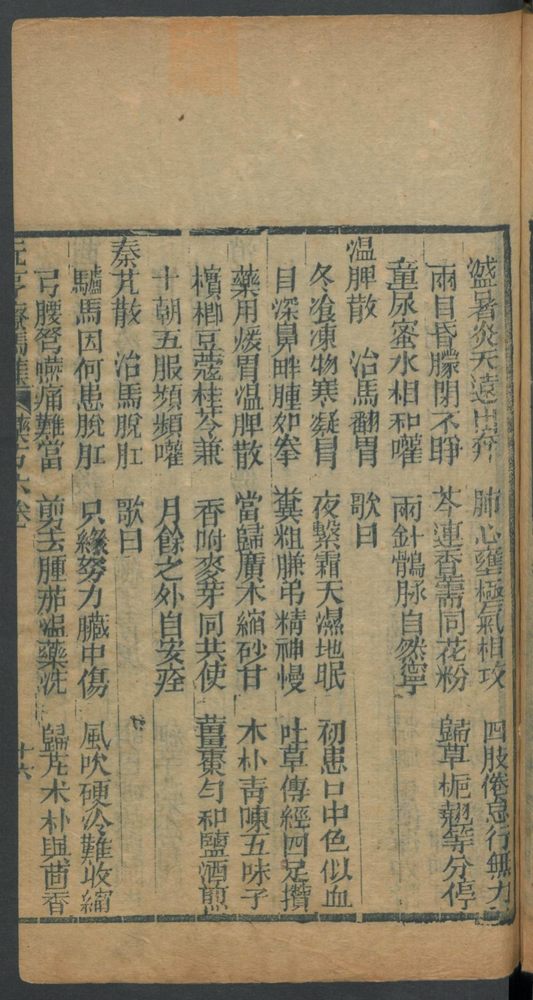 盛暑炎天遠出奔 肺心壅極氣相攻 四肢倦怠行無力
兩目昏朦閉不睜 芩連香薷同花粉 歸草梔翹等分停
童尿蜜水相和嚾 兩針鶻脉自然寧
温脾散 治馬翻胃 歌曰
冬飡凍物寒凝胃 夜繫霜天濕地眠 初患口中色似血
目深鼻畔腫如拳 糞粗膁弔精神慢 吐草傳經四足攢
藥用煖胃温脾散 當歸廣朮縮砂甘 木朴青陳五味子
檳榔豆蔻桂芩兼 香附麥芽同共使 薑棗勻和鹽酒煎
十朝五服頻頻嚾 月餘之外自安痊
秦艽散 治馬脫肛 歌曰
驢馬因何患脫肛 只緣努力臟中傷 風吹硬冷難收縮
弓腰努𡂿痛難當 剪去腫茄温藥洗 歸芃朮朴與茴香
元亨療馬集 藥方六卷 十六